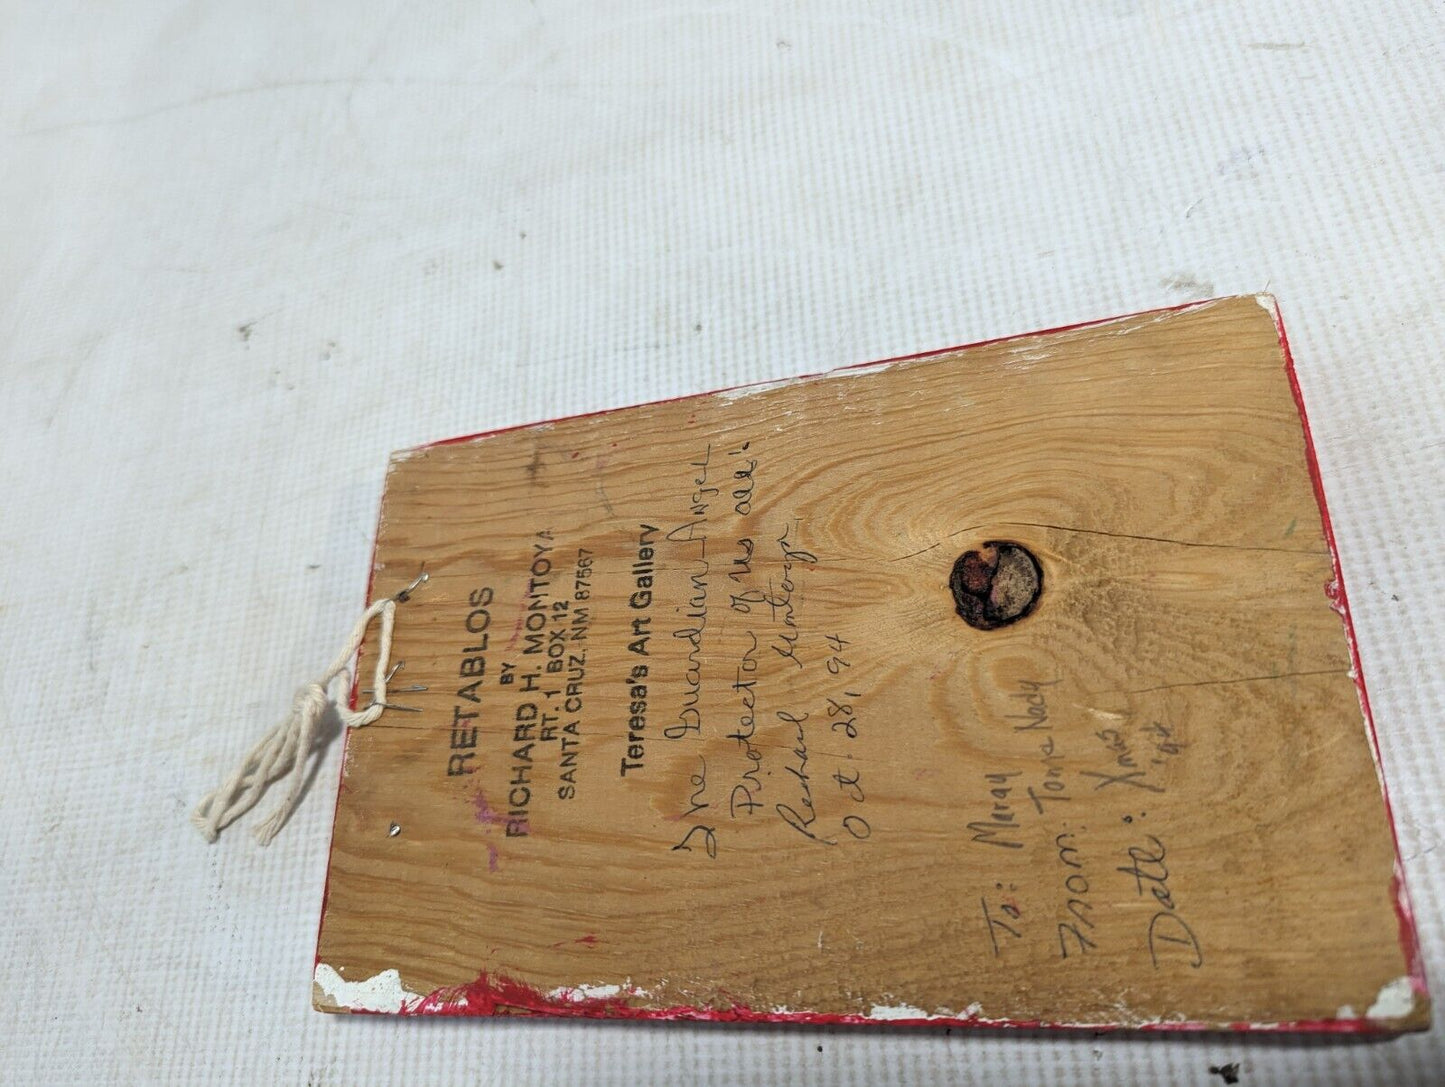 RETABLOS
BY
RICHARD H. MONTOYA
RT. 1 BOX 12
SANTA CRUZ, NM 87567
Teresa's Art Gallery
The Guardian Angel
Protector of us all
Richard Montoya
Oct. 28, 94
To:
From:
Date: Xmas